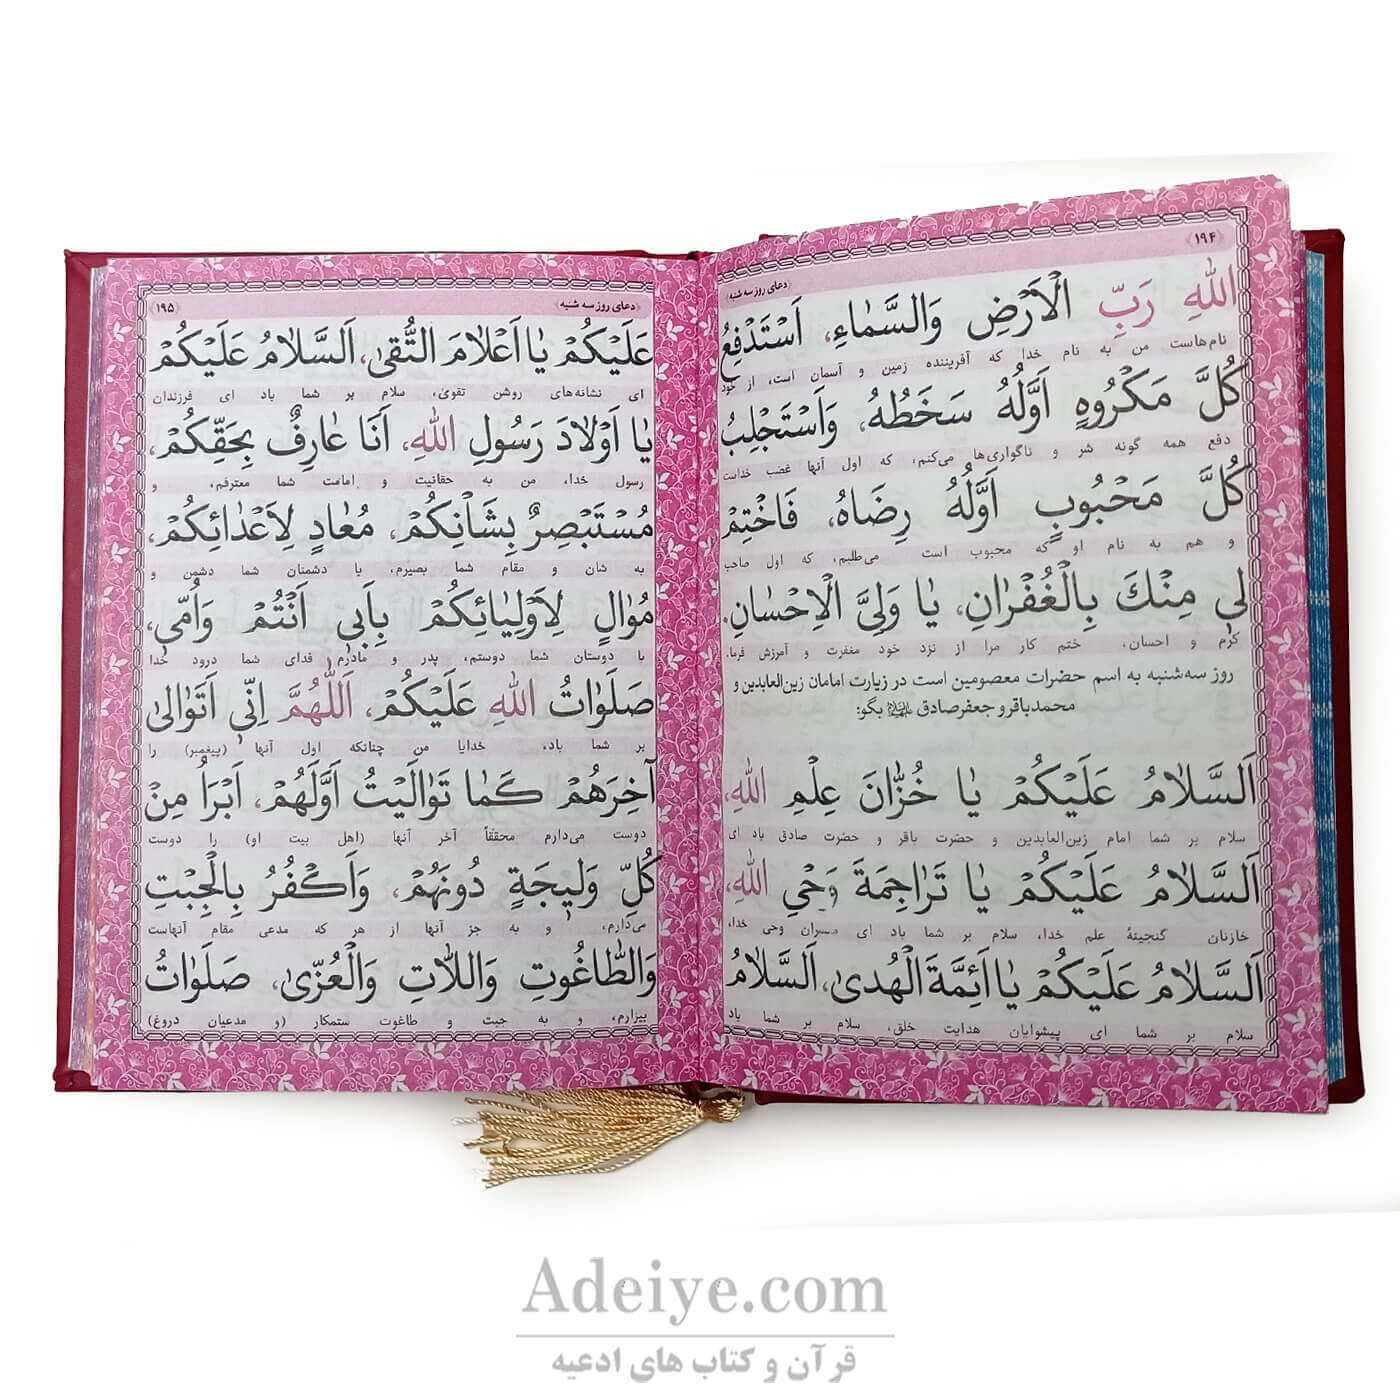 ﴿۱۹۴﴾
﴿دعای روز سه شنبه﴾
اللهِ رَبِّ الْاَرْضِ وَالسَّمٰاءِ، اَسْتَدْفِعُ
نام‌هاست من به نام خدا که آفریننده زمین و آسمان است، از خود
كُلَّ مَكْرُوهٍ اَوَّلُهُ سَخَطُهُ، وَاَسْتَجْلِبُ
دفع همه گونه شر و ناگواری‌ها می‌کنم، که اول آنها غضب خداست
كُلَّ مَحْبُوبٍ اَوَّلُهُ رِضَاهُ، فَاخْتِمْ
و هم به نام او که محبوب است می‌طلبم، که اول صاحب
لي مِنْكَ بِالْغُفْرٰانِ، يٰا وَلِيَّ الْاِحْسٰانِ.
کرم و احسان، ختم کار مرا از نزد خود مغفرت و آمرزش فرما.
روز سه‌شنبه به اسم حضرات معصومین است در زیارت امامان زین‌العابدین و
محمدباقر و جعفرصادق علیهم‌السلام بگو:
اَلسَّلٰامُ عَلَيْكُمْ يٰا خُزّٰانَ عِلْمِ اللهِ،
سلام بر شما امام زین‌العابدین و حضرت باقر و حضرت صادق باد ای
اَلسَّلٰامُ عَلَيْكُمْ يٰا تَرٰاجِمَةَ وَحْيِ اللهِ،
خازنان گنجینهٔ علم خدا، سلام بر شما باد ای مفسران وحی خدا،
اَلسَّلٰامُ عَلَيْكُمْ يٰا اَئِمَّةَ الْهُدىٰ، اَلسَّلٰامُ
سلام بر شما ای پیشوایان هدایت خلق، سلام بر شما باد
﴿دعای روز سه شنبه﴾
﴿۱۹۵﴾
عَلَيْكُمْ يٰا اَعْلٰامَ التُّقىٰ، اَلسَّلٰامُ عَلَيْكُمْ
ای نشانه‌های روشن تقوی، سلام بر شما باد ای فرزندان
يٰا اَوْلٰادَ رَسُولِ اللهِ، اَنَا عٰارِفٌ بِحَقِّكُمْ،
رسول خدا، من به حقانیت و امامت شما معترفم، و
مُسْتَبْصِرٌ بِشَانِكُمْ، مُعٰادٍ لِاَعْدٰائِكُمْ،
به شان و مقام شما بصیرم، با دشمنان شما دشمن و
مُوٰالٍ لِاَوْلِيٰائِكُمْ بِاَبي اَنْتُمْ وَاُمّي،
با دوستان شما دوستم، پدر و مادرم فدای شما درود خدا
صَلَوٰاتُ اللهِ عَلَيْكُمْ، اَللّٰهُمَّ اِنّي اَتَوٰالىٰ
بر شما باد، خدایا من چنانکه اول آنها (پیغمبر) را
آخِرَهُمْ كَمٰا تَوٰالَيْتُ اَوَّلَهُمْ، اَبْرَأُ مِنْ
دوست می‌دارم محققاً آخر آنها (اهل بیت او) را دوست
كُلِّ وَليجَةٍ دُونَهُمْ، وَاَكْفُرُ بِالْجِبْتِ
می‌دارم، و به جز آنها از هر که مدعی مقام آنهاست
وَالطّٰاغُوتِ وَاللّٰاتِ وَالْعُزّىٰ، صَلَوٰاتُ
بیزارم، و به جبت و طاغوت ستمکار (و مدعیان دروغ)
Adeiye.com
قرآن و کتاب های ادعیه